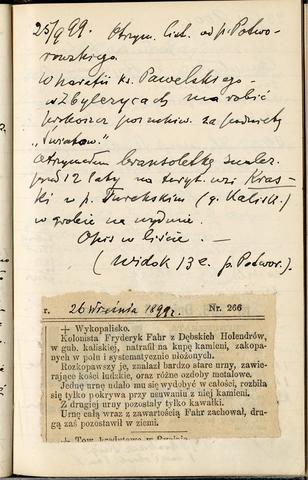 25/9 99. Otrzym. list od p. Potwo-
rowskiego.
W parafii ks. Pawelskiego -
w Zbylczycach ma robić
proboszcz poszukiw. za podnietą
„Światow."
Otrzymałem bransoletkę znalez.
przed 12 laty na teryt. wsi Kras-
ki w p. Tureckim (g. Kalisk.)
w grobie na wydmie.
Opis w liście. —
(Widok 13 e. p. Potwor.)
r. 26 Września 1899 r. Nr. 266
+ Wykopalisko.
Kolonista Fryderyk Fahr z Dębskich Holendrów,
w gub. kaliskiej, natrafił na kupę kamieni, zakopa-
nych w polu i systematycznie ułożonych.
Rozkopawszy je, znalazł bardzo stare urny, zawie-
rające kości ludzkie, oraz różne ozdoby metalowe.
Jednę urnę udało mu się wydobyć w całości, rozbiła
się tylko pokrywa przy usuwaniu z niej kamieni.
Z drugiej urny pozostały tylko kawałki.
Urnę całą wraz z zawartością Fahr zachował, dru-
gą zaś pozostawił w ziemi.